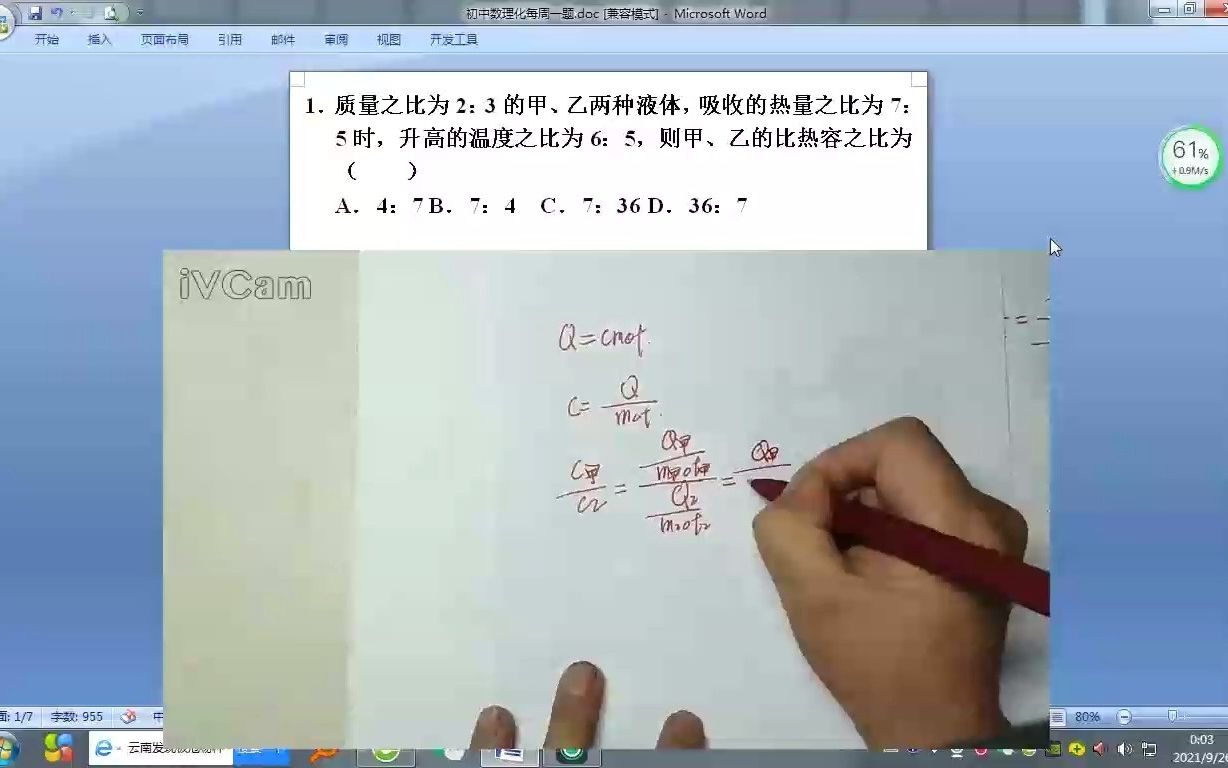 初中数理化每周一题.doc [兼容模式] - Microsoft Word
开始 插入 页面布局 引用 邮件 审阅 视图 开发工具
1. 质量之比为 2：3 的甲、乙两种液体，吸收的热量之比为 7：
5 时，升高的温度之比为 6：5，则甲、乙的比热容之比为
（ ）
A．4：7 B．7：4 C．7：36 D．36：7
61%
+0.9M/s
iVCam
Q=cmot.
C= Q
mot.
C甲
C乙
=
Q甲
m甲ot甲
Q乙
m乙ot乙
=
Q甲
=
面: 1/7 字数: 955 中
80%
云南发现
0:03
2021/9/26